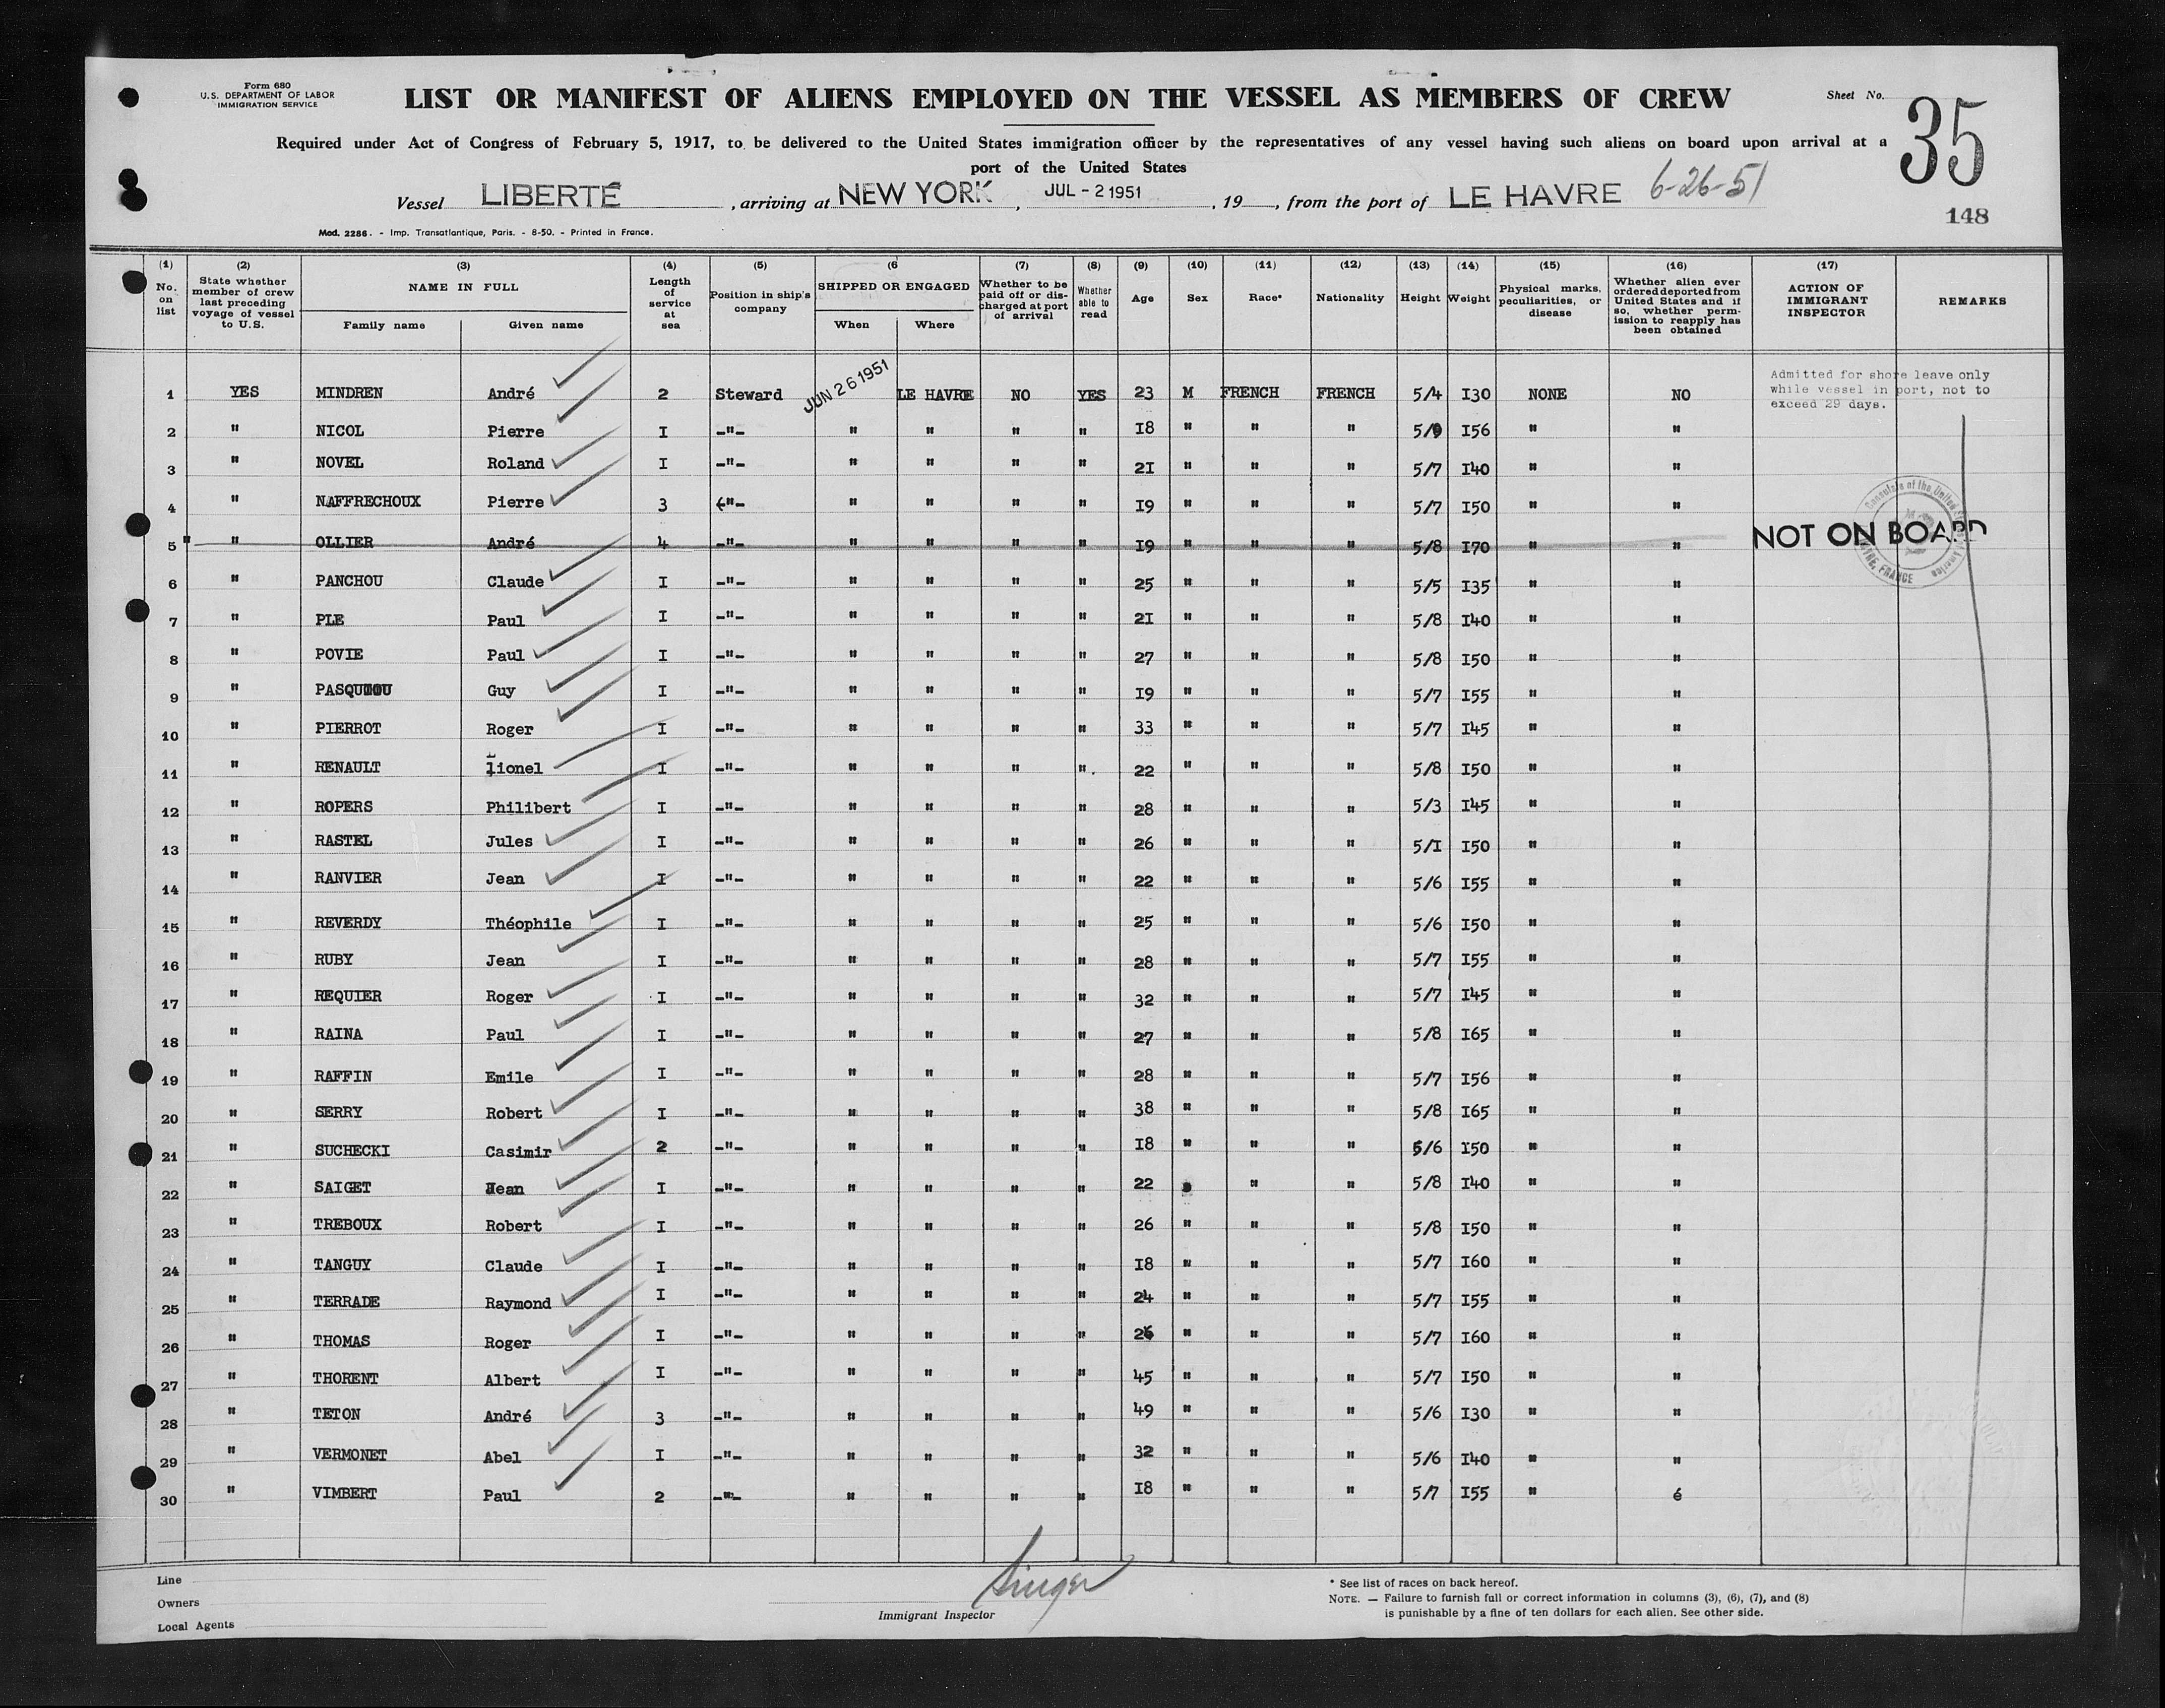 Form 680
U.S. DEPARTMENT OF LABOR
IMMIGRATION SERVICE
LIST OR MANIFEST OF ALIENS EMPLOYED ON THE VESSEL AS MEMBERS OF CREW
Sheet No. 35
Required under Act of Congress of February 5, 1917, to be delivered to the United States immigration officer by the representatives of any vessel having such aliens on board upon arrival at a
port of the United States
Vessel LIBERTÉ, arriving at NEW YORK, JUL - 2 1951, 19, from the port of LE HAVRE 6-26-51
148
Mod. 2286. - Imp. Transatlantique, Paris. - 8-50. - Printed in France.
(1) No. on list (2) State whether member of crew last preceding voyage of vessel to U.S. (3) NAME IN FULL Family name Given name (4) Length of service at sea (5) Position in ship's company (6 SHIPPED OR ENGAGED When Where (7) Whether to be paid off or discharged at port of arrival (8) Whether able to read (9) Age (10) Sex (11) Race* (12) Nationality (13) Height (14) Weight (15) Physical marks, peculiarities, or disease (16) Whether alien ever ordered deported from United States and if so, whether permission to reapply has been obtained (17) ACTION OF IMMIGRANT INSPECTOR REMARKS
1 YES MINDREN André 2 Steward JUN 26 1951 LE HAVRE NO YES 23 M FRENCH FRENCH 5/4 I30 NONE NO Admitted for shore leave only while vessel in port, not to exceed 29 days.
2 " NICOL Pierre I -"- " " " " I8 " " " I56 " "
3 " NOVEL Roland I -"- " " " " 2I " " " 5/7 I40 " "
4 " NAFFRECHOUX Pierre 3 -"- " " " " I9 " " " 5/7 I50 " "
5 " OLLIER André 4 -"- " " " " I9 " " " 5/8 I70 " " NOT ON BOARD
6 " PANCHOU Claude I -"- " " " " 25 " " " 5/5 I35 " "
7 " PLE Paul I -"- " " " " 2I " " " 5/8 I40 " "
8 " POVIE Paul I -"- " " " " 27 " " " 5/8 I50 " "
9 " Guy I -"- " " " " I9 " " " 5/7 I55 " "
10 " PIERROT Roger I -"- " " " " 33 " " " 5/7 I45 " "
11 " RENAULT Lionel I -"- " " " " 22 " " " 5/8 I50 " "
12 " ROPERS Philibert I -"- " " " " 28 " " " 5/3 I45 " "
13 " RASTEL Jules I -"- " " " " 26 " " " 5/I I50 " "
14 " RANVIER Jean I -"- " " " " 22 " " " 5/6 I55 " "
15 " REVERDY Théophile I -"- " " " " 25 " " " 5/6 I50 " "
16 " RUBY Jean I -"- " " " " 28 " " " 5/7 I55 " "
17 " REQUIER Roger I -"- " " " " 32 " " " 5/7 I45 " "
18 " RAINA Paul I -"- " " " " 27 " " " 5/8 I65 " "
19 " RAFFIN Emile I -"- " " " " 28 " " " 5/7 I56 " "
20 " SERRY Robert I -"- " " " " 38 " " " 5/8 I65 " "
21 " SUCHECKI Casimir 2 -"- " " " " I8 " " " 5/6 I50 " "
22 " SAIGET Jean I -"- " " " " 22 " " " 5/8 I40 " "
23 " TREBOUX Robert I -"- " " " " 26 " " " 5/8 I50 " "
24 " TANGUY Claude I -"- " " " " I8 " " " 5/7 I60 " "
25 " TERRADE Raymond I -"- " " " " 24 " " " 5/7 I55 " "
26 " THOMAS Roger I -"- " " " " " " " 5/7 I60 " "
27 " THORENT Albert I -"- " " " " 45 " " " 5/7 I50 " "
28 " TETON André 3 -"- " " " " 49 " " " 5/6 I30 " "
29 " VERMONET Abel I -"- " " " " 32 " " " 5/6 I40 " "
30 " VIMBERT Paul 2 -"- " " " " I8 " " " 5/7 I55 " é
Line
Owners
Local Agents
Singer
Immigrant Inspector
* See list of races on back hereof.
NOTE. — Failure to furnish full or correct information in columns (3), (6), (7), and (8)
is punishable by a fine of ten dollars for each alien. See other side.